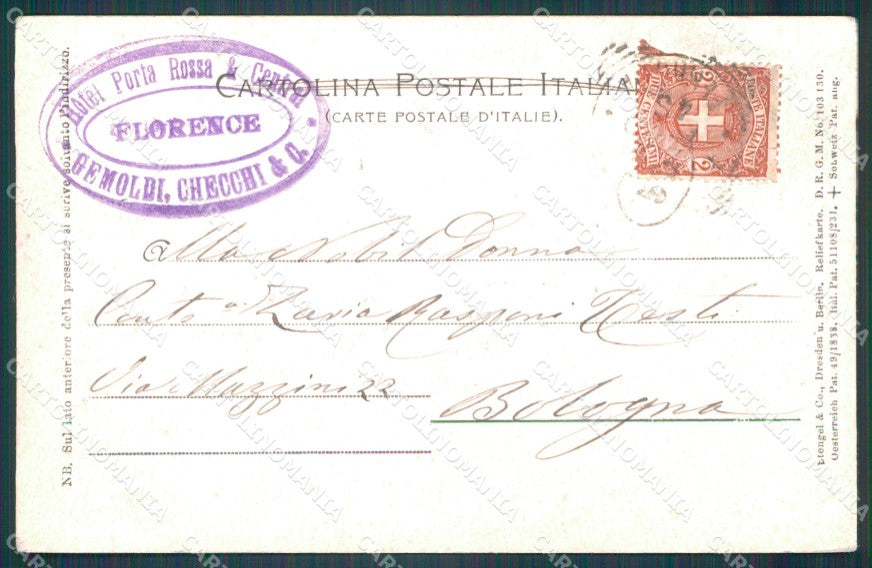 Hôtel Porta Rossa & Central
FLORENCE
GEMOLDI, CHECCHI & C.
CARTOLINA POSTALE ITALIANA
(CARTE POSTALE D'ITALIE).
Alla Nobil Donna
Contsa Zavia Rasponi Testi
Via Mazzini 22
Bologna
NB. Sul lato anteriore della presente si scrive soltanto l'indirizzo.
Stengel & Co., Dresden u. Berlin. Reliefkarte. D. R. G. M. No. 103 130.
Oesterreich Pat. 49/1838. Ital. Pat. 51108/231. + Schweiz Pat. ang.
CARTOLINOMANIA